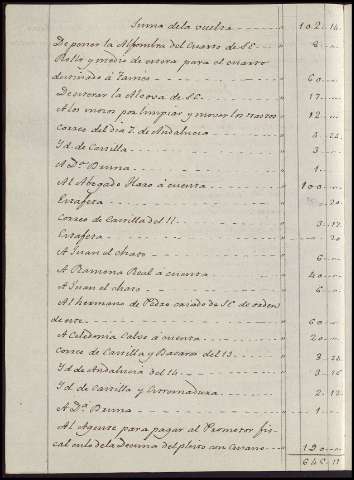 Suma de la vuelta " 102. 14.
De poner la Alfombra del Cuarto de S.E. "
Rollo y medio de estera para el cuarto
destinado á " 60.
De esterar la Alcova de S.E. " 17.
A los mozos por limpiar y mover los trastos " 12.
Correo del dia 7. de Andalucia " 4. 22.
Yd. de Castilla " 3.
A Dª. Bruna " 1.
Al Abogado Haro á cuenta " 100.
Estafeta " 20.
Correo de Castilla del 11. "
Estafeta " 20.
A Juan el chato " 6.
A Ramona Real á cuenta " 40.
A Juan el chato " 6.
Al hermano de Pedro criado de S.E. de orden
de este " 60.
A Celedonia Calvo á cuenta " 20.
Correo de Castilla y Navarra del 13. " 3.
Yd. de Andalucia del 14. " 3.
Yd. de Castilla y Estremadura " 2. 12.
A Dª. Bruna " 1.
Al Agente para pagar al Promotor fis-
cal